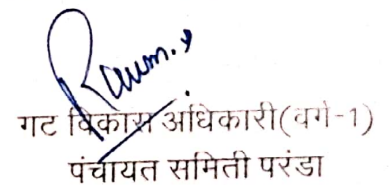 गट विकास अधिकारी(वर्ग-1)
पंचायत समिती परंडा